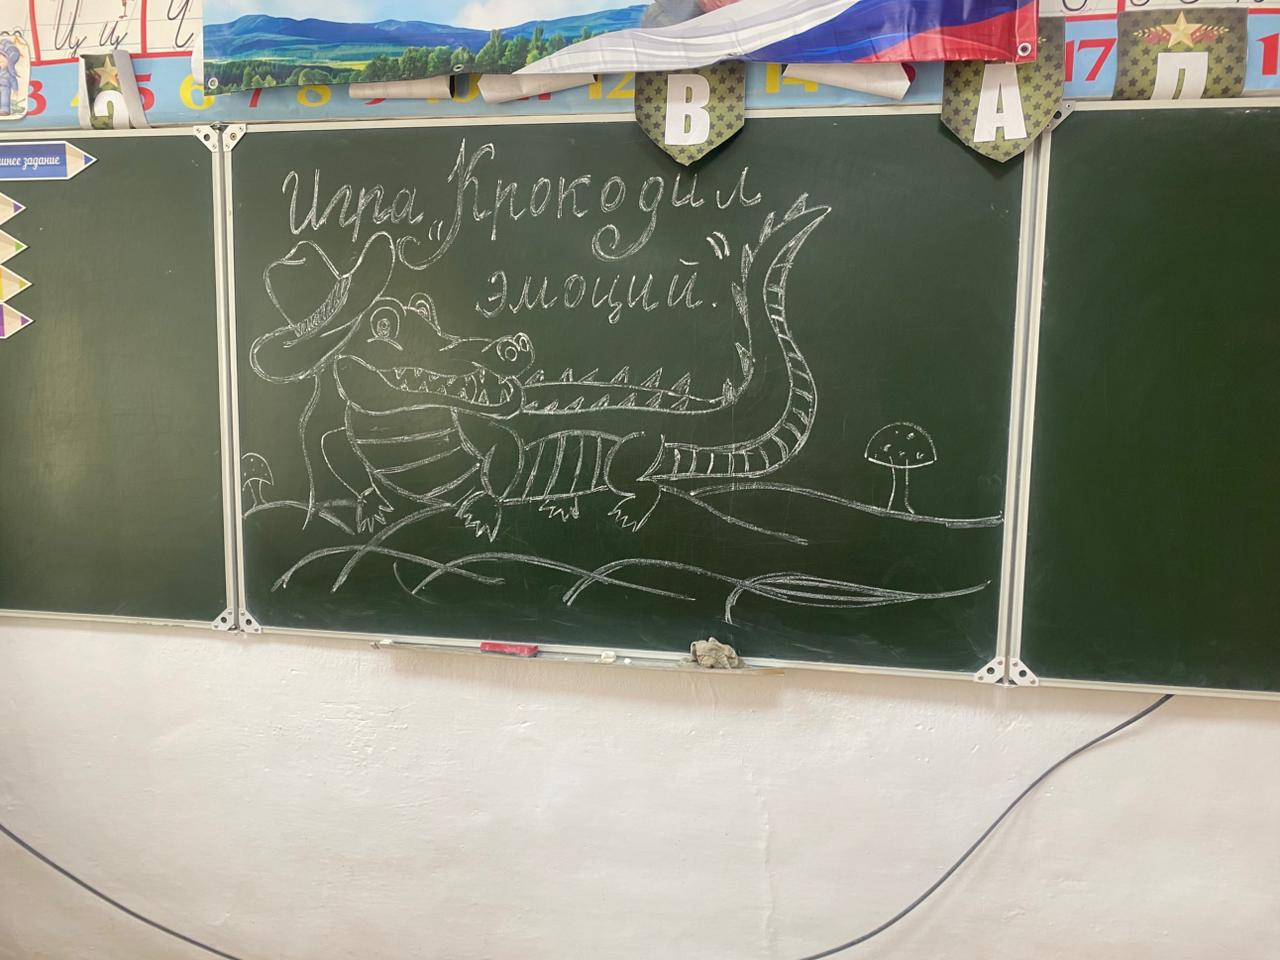 Ц ц
3 4 5 6 7 8 9 10 11 12 14 17 1
В А П
шнее задание
Игра „Крокодил
эмоций".